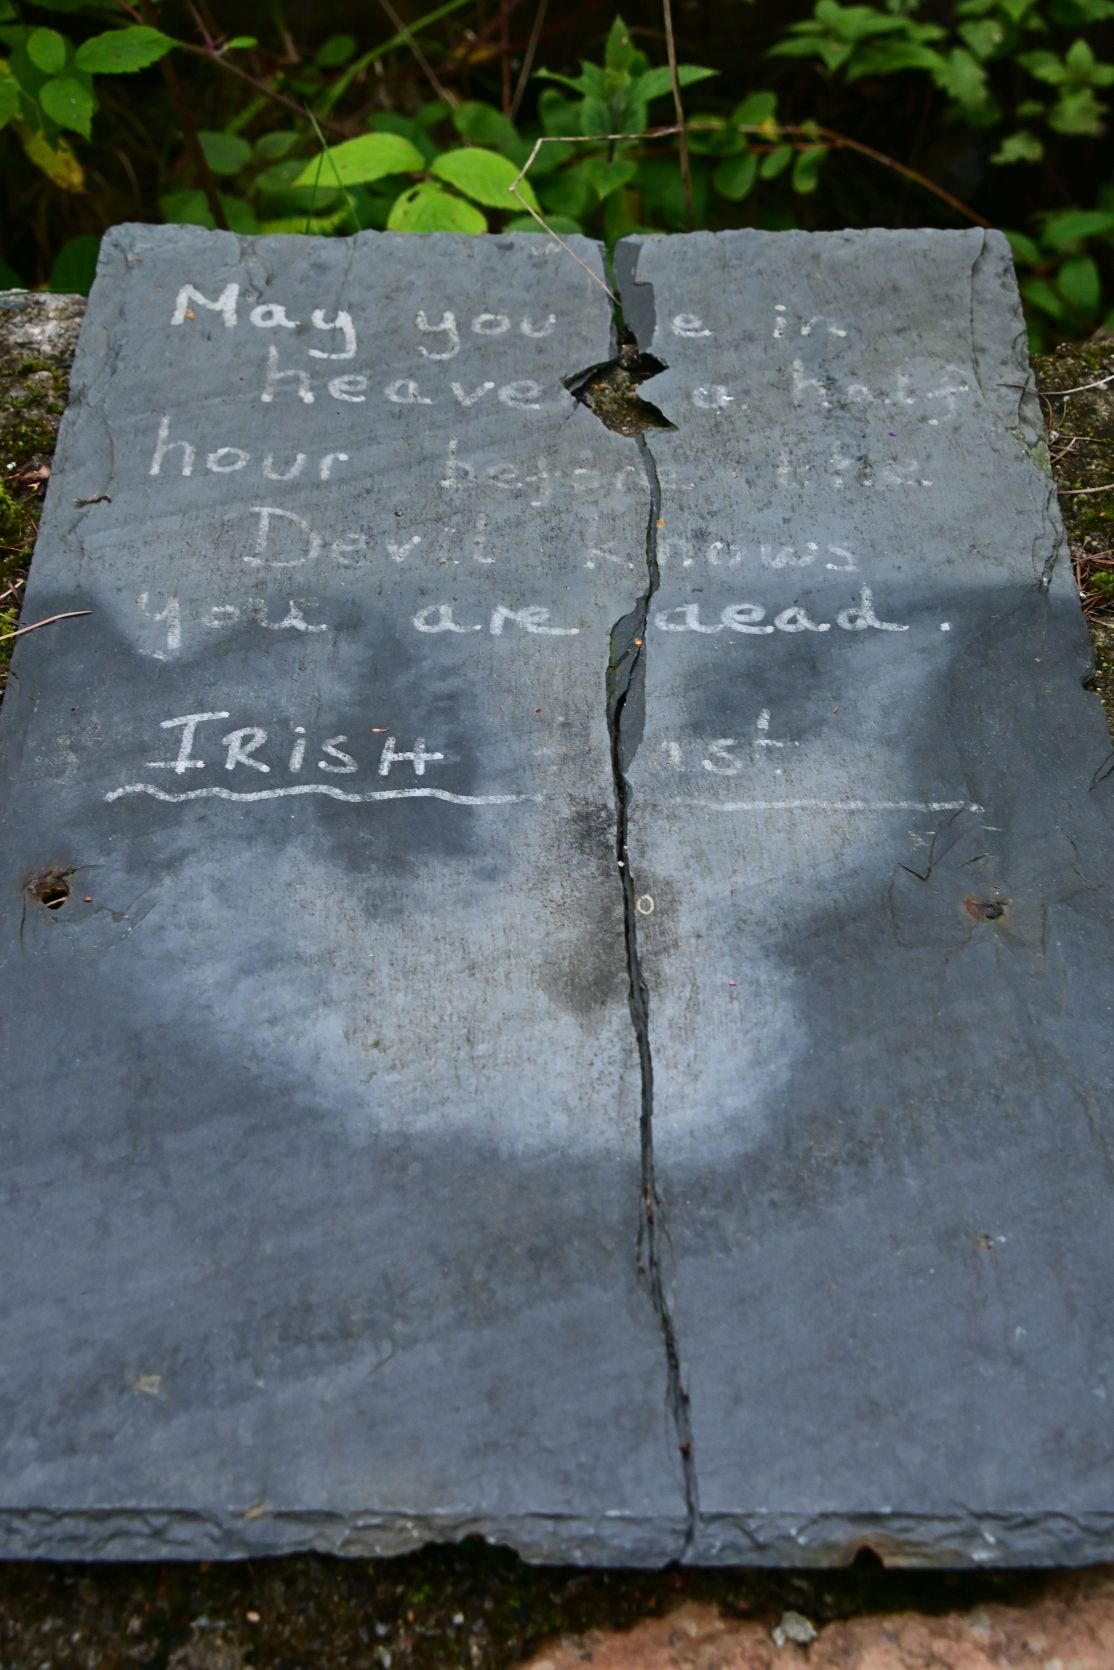 May you e in
heave a half
hour before the
Devil knows
you are dead.
IRiSH